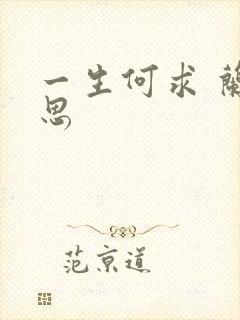 一生何求 蘭
思
范京道